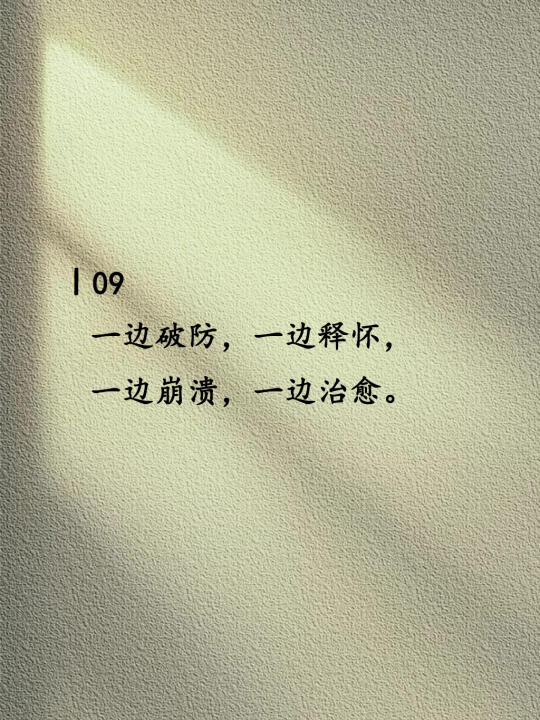 | 09
一边破防，一边释怀，
一边崩溃，一边治愈。